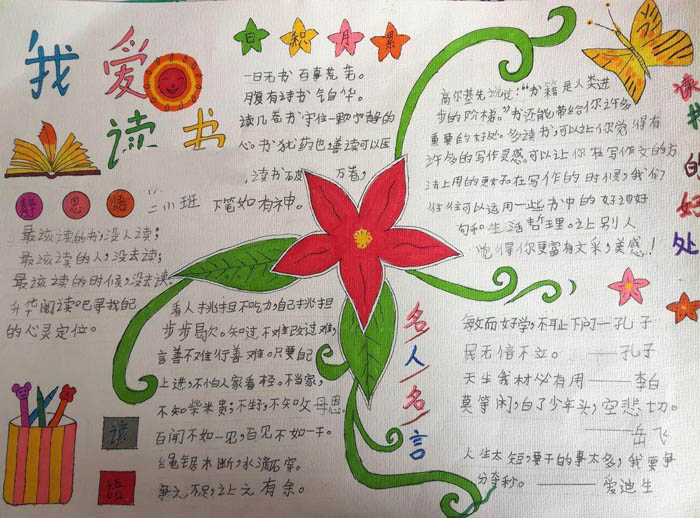 我爱
读书
日积月累
一日无书百事荒芜。
腹有诗书气自华。
读几卷书守住一颗宁静的
心。书犹药也,善读可以医
,读书破 万卷,
下笔如有神。
二小 班
静思悟
最该读的书,没人读;
最该读的人,没去读;
最该读的时候,没去读
升华阅读吧寻找自己
的心灵定位。
读书的好处
高尔基先生说:“书籍是人类进
步的阶梯。”书还能带给你许多
重要的好处。多读书,可以让你觉得有
许多的写作灵感。可以让你在写作文的方
法上用的更好。在写作的时候,我们
往往可以运用一些书中的好词好
句和生活哲理。让别人
觉得你更富有文采,美感!
看人挑担不吃力,自己挑担
步步歇。知过不难改过难,
言善不难行善难。只要自己
上进,不怕人家看轻。不当家,
不知柴米贵;不生子,不知父母恩。
百闻不如一见,百见不如一干。
绳锯木断,水滴石穿。
争之不足,让之有余。
谚语
名人名言
敏而好学,不耻下问—孔子
民无信不立。——孔子
天生我材必有用——李白
莫等闲,白了少年头,空悲切。
——岳飞
人生太短,要干的事太多,我要争
分夺秒。——爱迪生